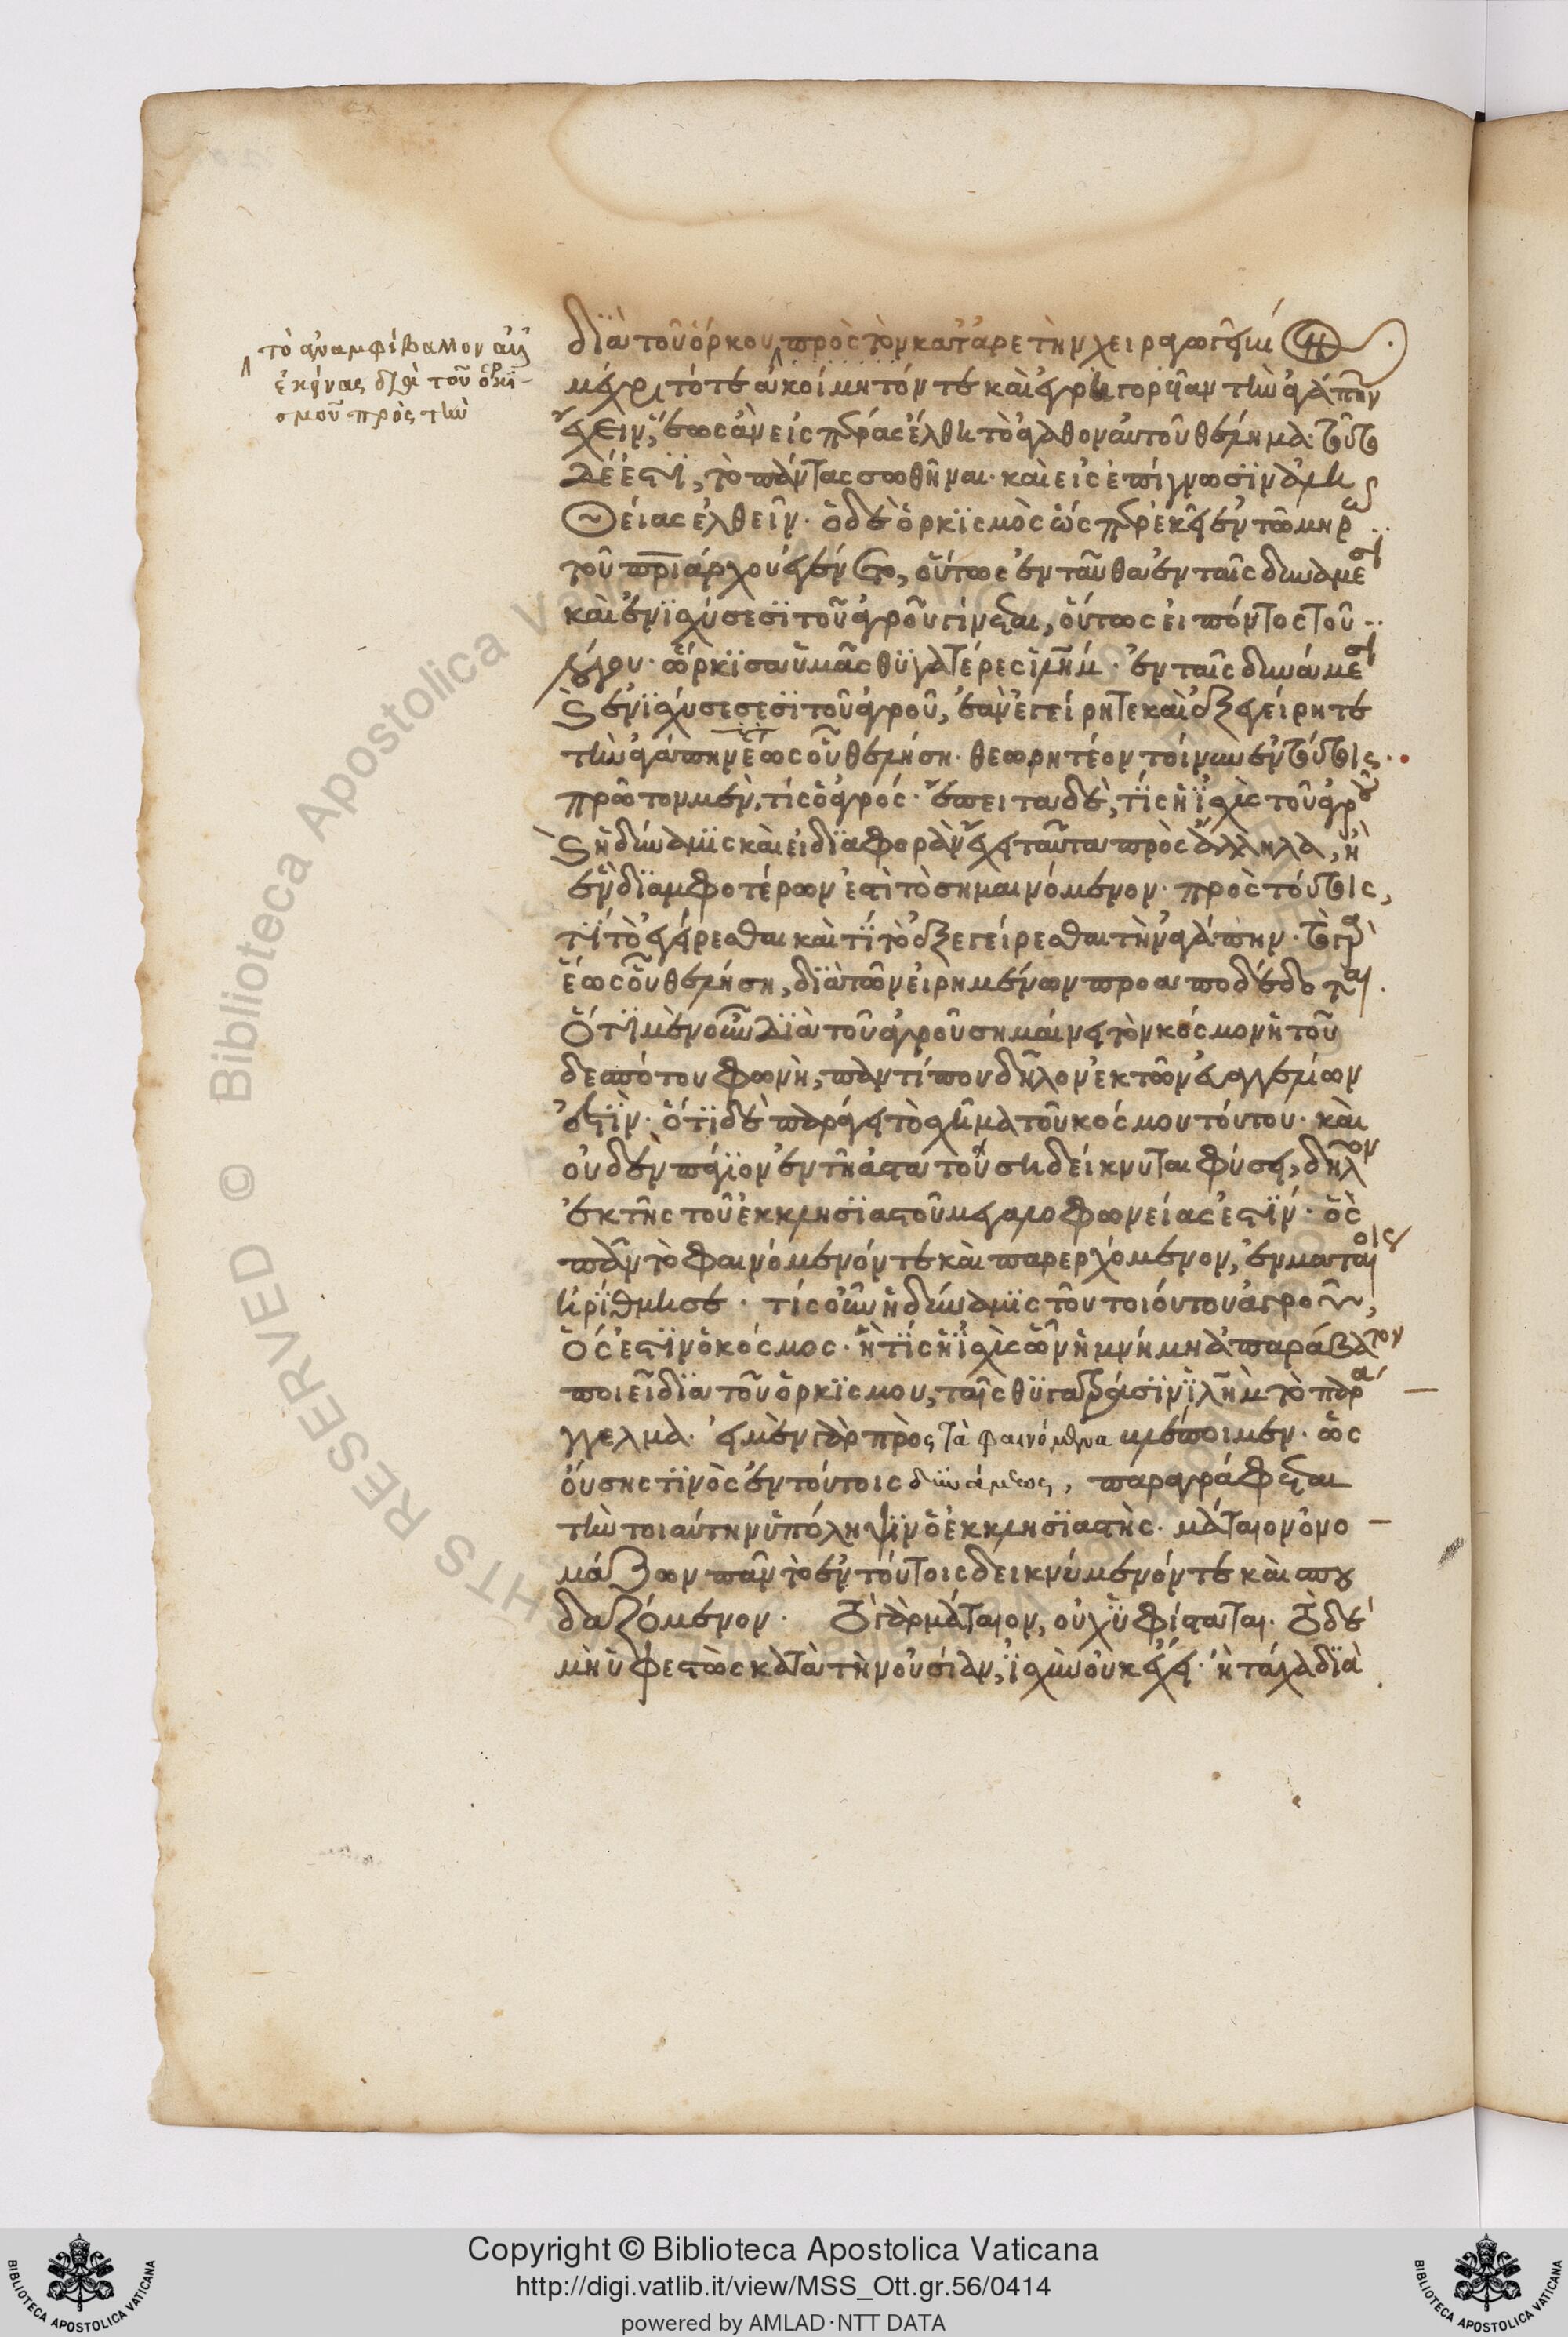 τὸ ἀναμφίβαλλον αὐτ
ἐκείνας διὰ τοῦ ὁρκι-
σμοῦ πρὸς τὴν
διὰ τοῦ ὅρκου πρὸς τὸν κατ' ἀρετὴν χειραγωγεῖται
μέχρι τότε ἀκοίμητόν τε καὶ ἐγρηγορυῖαν τὴν ἀγάπην
ἔχειν, ἕως ἂν εἰς πέρας ἔλθη τὸ ἀγαθὸν αὐτοῦ θέλημα· τοῦτο
δέ ἐστι, τὸ πάντας σωθῆναι· καὶ εἰς ἐπίγνωσιν ἀλη
θείας ἐλθεῖν· ὁ δὲ ὁρκισμὸς ὡς περ ἐκεῖ ἐν τῷ μηρῷ
τοῦ πριάρχου ἐγένετο, οὕτως ἐνταῦθα ἐν ταῖς δυνάμεσι
καὶ ἐν ἰσχύσεσι τοῦ ἀγροῦ γίνεται, οὕτως εἰπόντος τοῦ
λόγου· ὥρκισα ὑμᾶς θυγατέρες ἱλῆμ· ἐν ταῖς δυνάμεσι
καὶ ἐν ἰσχύσεσεσι τοῦ ἀγροῦ, ἐὰν ἐγείρητε καὶ ἐξεγείρητε
τὴν ἀγάπην ἕως οὗ θελήση· θεωρητέον τοίνυν ἐν τούτοις·
πρῶτον μὲν, τίς ὁ ἀγρός· ἔπειτα δὲ, τίς ἡ ἰσχὺς τοῦ ἀγροῦ
καὶ ἡ δύναμις καὶ εἰ διαφορὰν ἔχει ταῦτα πρὸς ἄλληλα, ἢ
ἓν δι' ἀμφοτέρων ἐστὶ τὸ σημαινόμενον· πρὸς τούτοις,
τί τὸ ἐγείρεσθαι καὶ τί τὸ ἐξεγείρεσθαι τὴν ἀγάπην· τὸ γὰρ
ἕως οὗ θελήση, διὰ τῶν εἰρημένων προαποδέδοται.
Ὅτι μὲν οὖν διὰ τοῦ ἀγροῦ σημαίνει τὸν κόσμον ἡ τοῦ
δεσπότου φωνὴ, παντί που δῆλον ἐκ τῶν εὐαγγελίων
ἐστὶν· ὅτι δὲ παράγει τὸ σχῆμα τοῦ κόσμου τούτου· καὶ
οὐδὲν πάγιον ἐν τῇ ἀστατούση δείκνυται φύσει, δῆλον
ἐκ τῆς τοῦ ἐκκλησιαστοῦ μεγαλοφωνείας ἐστίν· ὃς
πᾶν τὸ φαινόμενόν τε καὶ παρερχόμενον, ἐν ματαίοις
ἠρίθμησε· τίς οὖν ἡ δύναμις τοῦ τοιούτου ἀγροῦ,
ὅς ἐστιν ὁ κόσμος· ἢ τίς ἡ ἰσχὺς ὧν ἡ μνήμη ἀπαράβατον
ποιεῖ διὰ τοῦ ὁρκισμου, ταῖς θυγατράσιν ἱλῆμ τὸ παρά
γγελμα· εἰ μὲν γὰρ πρὸς τὰ φαινόμενα βλέποιμεν· ὡς
οὔσης τινὸς ἐν τούτοις δυνάμεως, παραγράφεται
τὴν τοιαύτην ὑπόληψιν ὁ ἐκκλησιαστὴς· μάταιον ὀνο
μάζων πᾶν τὸ ἐν τούτοις δεικνύμενόν τε καὶ σπου
δαζόμενον· Τὸ γὰρ μάταιον, οὐχ ὑφίσταται· Τὸ δὲ
μὴ ὑφεστὼς κατὰ τὴν οὐσίαν, ἰσχὺν οὐκ ἔχει· ἢ τάχα διὰ
RESERVED © Biblioteca Apostolica Vaticana
Copyright © Biblioteca Apostolica Vaticana
http://digi.vatlib.it/view/MSS_Ott.gr.56/0414
powered by AMLAD·NTT DATA
BIBLIOTECA APOSTOLICA VATICANA
BIBLIOTECA APOSTOLICA VATICANA